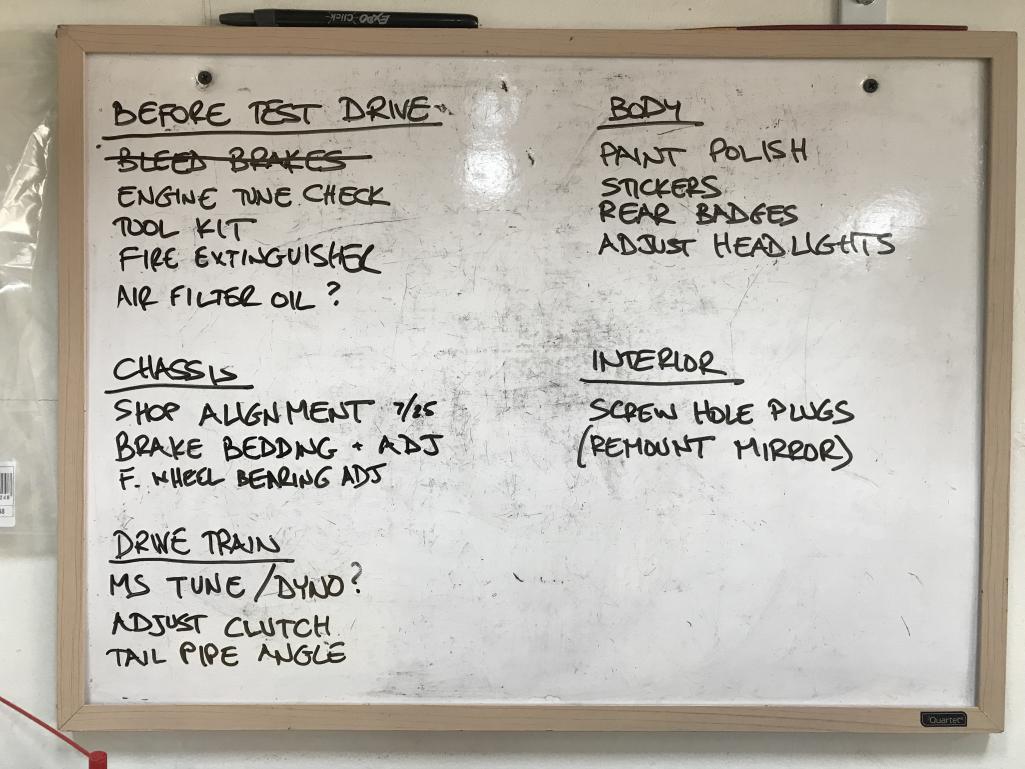 EXPO CLICK
BEFORE TEST DRIVE
BLEED BRAKES
ENGINE TUNE CHECK
TOOL KIT
FIRE EXTINGUISHER
AIR FILTER OIL ?
CHASSIS
SHOP ALIGNMENT 7/25
BRAKE BEDDING + ADJ
F. WHEEL BEARING ADJ
DRIVE TRAIN
MS TUNE / DYNO ?
ADJUST CLUTCH
TAIL PIPE ANGLE
BODY
PAINT POLISH
STICKERS
REAR BADGES
ADJUST HEADLIGHTS
INTERIOR
SCREW HOLE PLUGS
(REMOUNT MIRROR)
Quartet